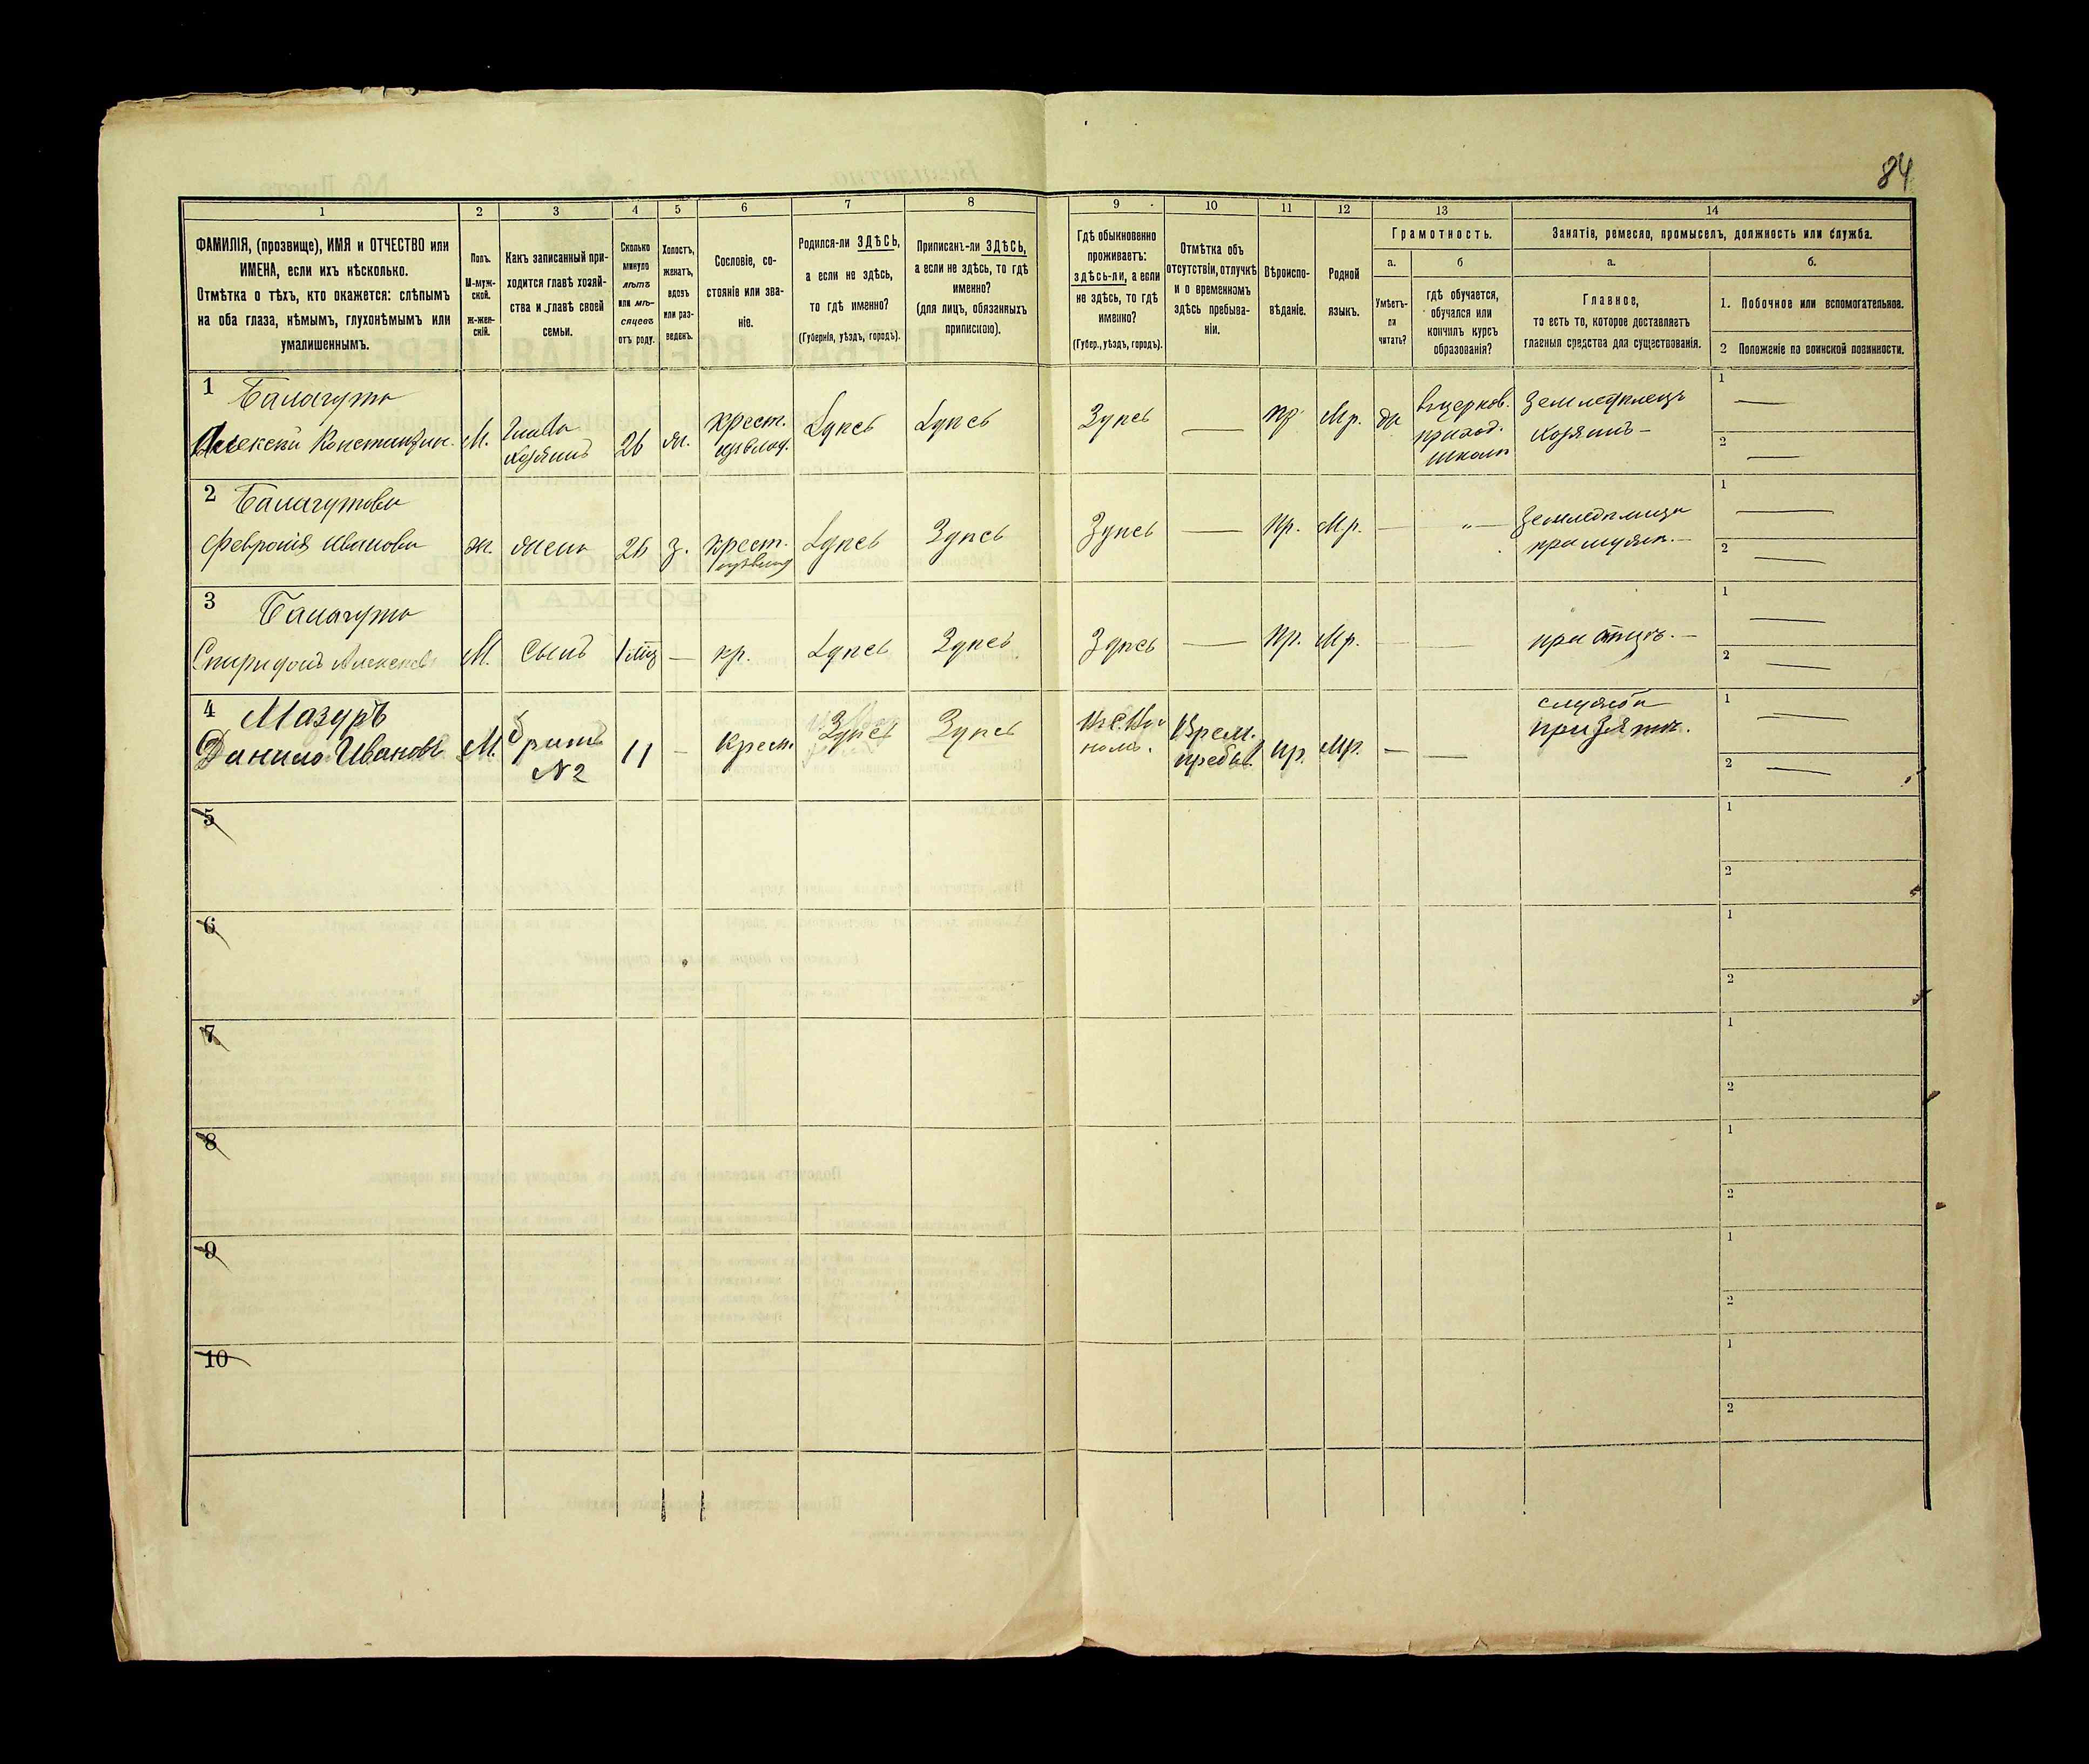 84
1
2
3
4
5
6
7
8
9
10
11
12
13
14
ФАМИЛІЯ, (прозвище), ИМЯ и ОТЧЕСТВО или
ИМЕНА, если ихъ нѣсколько.
Отмѣтка о тѣхъ, кто окажется: слѣпымъ
на оба глаза, нѣмымъ, глухонѣмымъ или
умалишеннымъ.
Полъ.
М-муж-
ской.
ж-жен-
скій.
Какъ записанный при-
ходится главѣ хозяй-
ства и главѣ своей
семьи.
Сколько
минуло
лѣтъ
или мѣ-
сяцевъ
отъ роду.
Холостъ,
женатъ,
вдовъ
или раз-
веденъ.
Сословіе, со-
стояніе или зва-
ніе.
Родился-ли ЗДѢСЬ,
а если не здѣсь,
то гдѣ именно?
(Губернія, уѣздъ, городъ).
Приписанъ-ли ЗДѢСЬ,
а если не здѣсь, то гдѣ
именно?
(для лицъ, обязанныхъ
припискою).
Гдѣ обыкновенно
проживаетъ:
здѣсь-ли, а если
не здѣсь, то гдѣ
именно?
(Губер., уѣздъ, городъ).
Отмѣтка объ
отсутствіи, отлучкѣ
и о временномъ
здѣсь пребыва-
ніи.
Вѣроиспо-
вѣданіе.
Родной
языкъ.
Грамотность.
а.
Умѣетъ-
ли
читать?
б
гдѣ обучается,
обучался или
кончилъ курсъ
образованія?
Занятіе, ремесло, промыселъ, должность или служба.
а.
Главное,
то есть то, которое доставляетъ
главныя средства для существованія.
б.
1. Побочное или вспомогательное.
2 Положеніе по воинской повинности.
1 Балагута
Алексѣй Константин. М. Глава Хозяинъ 26 ж. крест. Здѣсь Здѣсь Здѣсь — пр Мр. да въ церков. приход. школѣ Земледѣлецъ Хозяинъ —
1 —
2 —
2 Балагутова
Февронія Иванова ж. жена 26 з. крест. Здѣсь Здѣсь Здѣсь — пр. Мр. — " — Земледѣлица при мужѣ. —
1 —
2 —
3 Балагута
Спиридонъ Алексѣевъ М. Сынъ 1 мѣс — кр. Здѣсь Здѣсь Здѣсь — пр. Мр. — — при отцѣ. —
1 —
2 —
4 Мазуръ
Данило Ивановъ М. братъ №2 11 — Крест. Здѣсь Здѣсь Врем. пребыв. пр. Мр. — — при зятѣ.
1 —
2 —
5
1
2
6
1
2
7
1
2
8
1
2
9
1
2
10
1
2